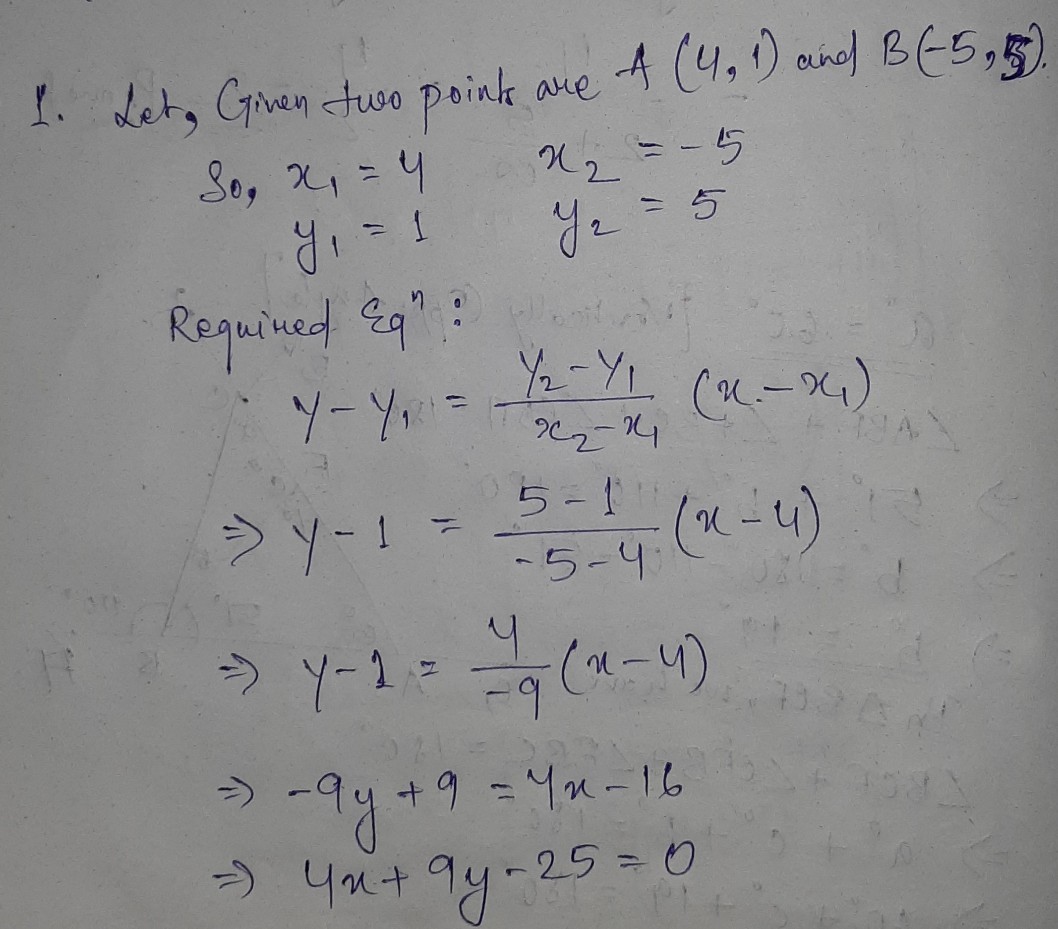 1. Let, Given two points are A (4,1) and B(-5,5).
So, x₁ = 4 x₂ = -5
y₁ = 1 y₂ = 5
Required Eqⁿ :
y - y₁ = (y₂ - y₁)/(x₂ - x₁) (x - x₁)
⇒ y - 1 = (5 - 1)/(-5 - 4) (x - 4)
⇒ y - 1 = 4/-9 (x - 4)
⇒ -9y + 9 = 4x - 16
⇒ 4x + 9y - 25 = 0